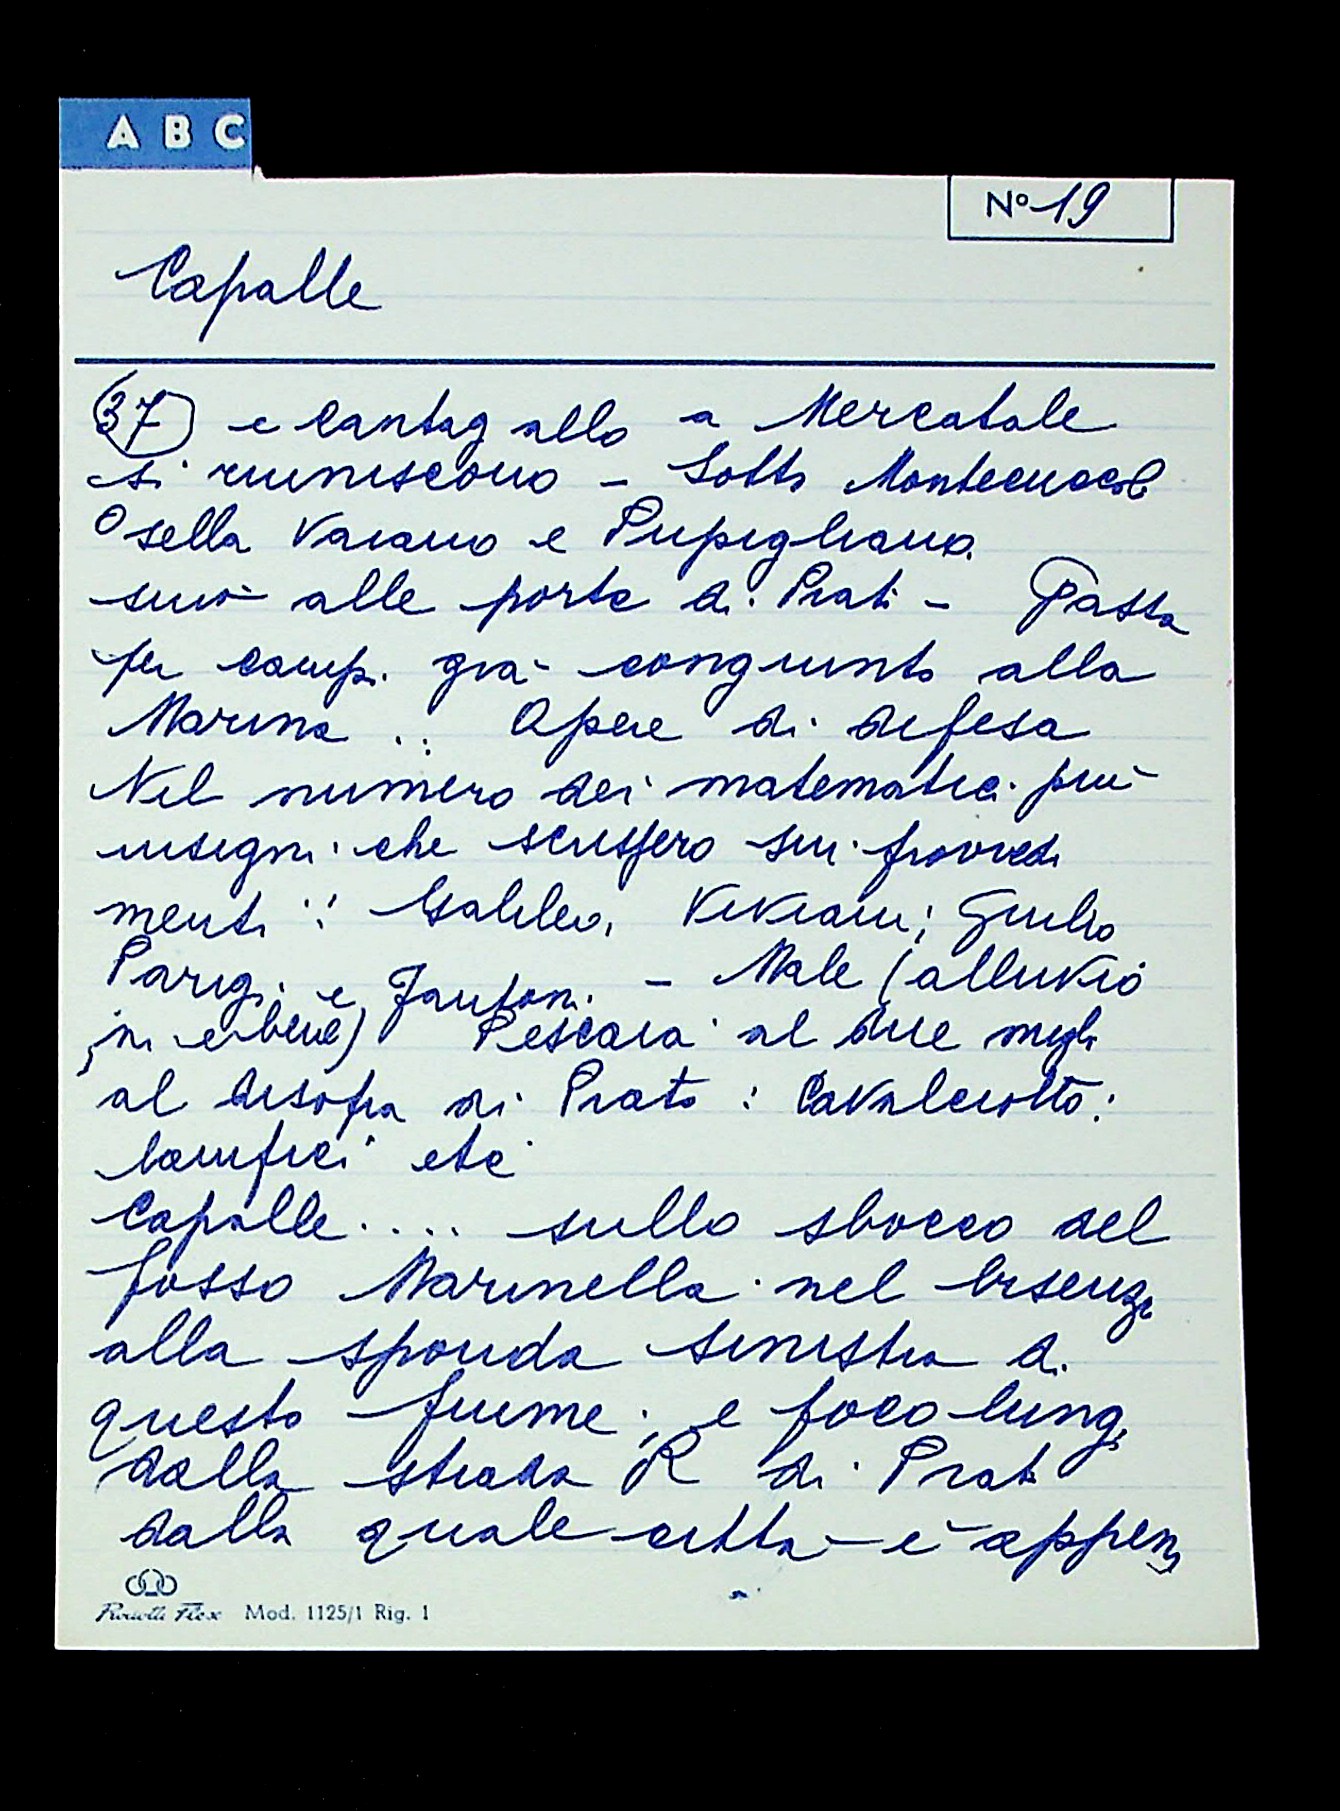 A B C
Nº 19
Capalle
37 e Cantagallo a Mercatale
si riuniscono - Sotto Montecuccoli
O sella Vaiano e Pupigliano.
sino alle porte di Prato - Passa
per Campi già congiunto alla
Marina .: Opere di difesa
Nel numero dei matematici più
insigni che scrissero sui provvedi
menti :: Galileo, Viviani; Giulio
Parigi e Fantoni. - Male (alluvio
ni erbene) Pescaia al due migli
al disopra di Prato : Cavalciotto:
lanifici etc
Capalle.... sullo sbocco del
fosso Marinella nel bisenzio
alla sponda sinistra di
questo fiume; e poco lungi
dalla strada R di Prato
dalla quale città è appena
Mod. 1125/1 Rig. 1